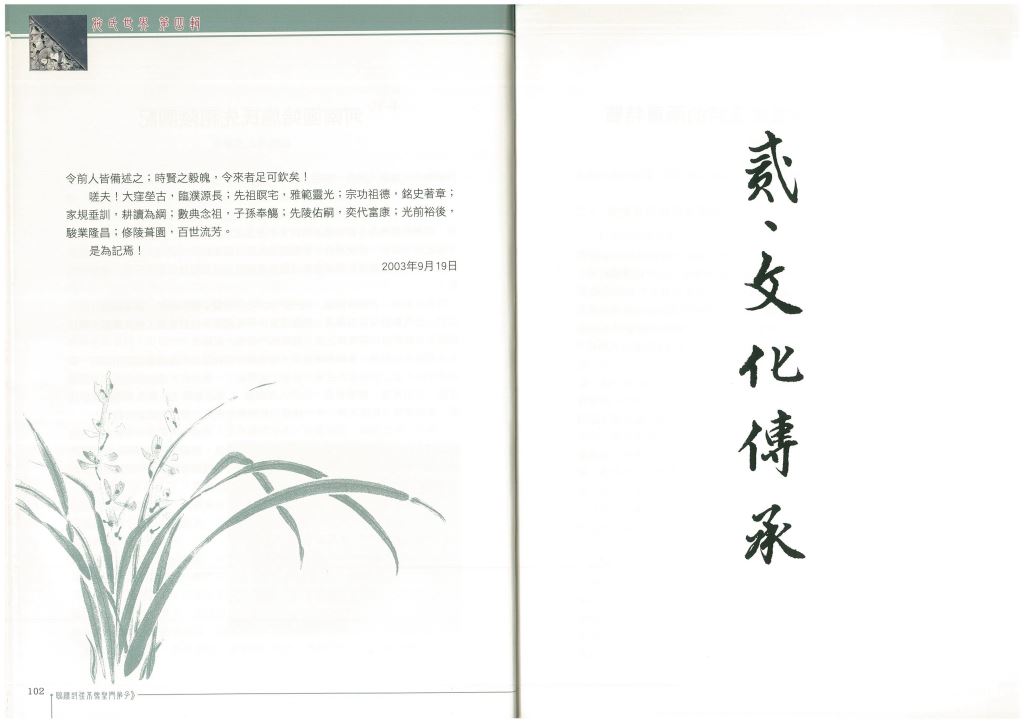 施氏世界 第四輯
令前人皆備述之；時賢之毅魄，令來者足可欽矣！
嗟夫！大窪塋古，臨濮源長；先祖瞑宅，雅範靈光；宗功祖德，銘史著章；
家規垂訓，耕讀為綱；數典念祖，子孫奉觴；先陵佑嗣，奕代富康；光前裕後，
駿業隆昌；修陵葺園，百世流芳。
是為記焉！
2003年9月19日
102
貳、文化傳承